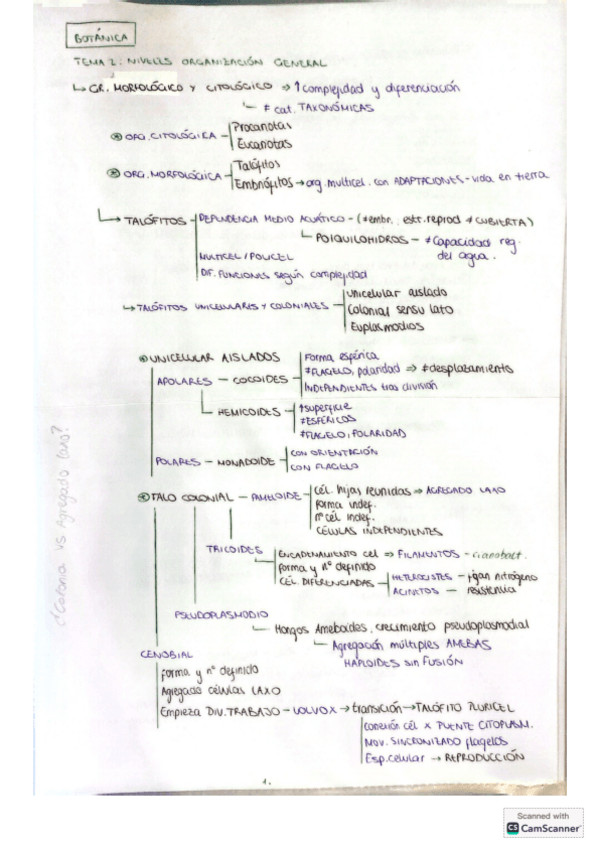 BOTÁNICA
TEMA 2: NIVELES ORGANIZACIÓN GENERAL
↳ GR. MORFOLÓGICO Y CITOLÓGICO ⇒ ↑ complejidad y diferenciación
≠ cat. TAXONÓMICAS
* ORG. CITOLÓGICA - Procariotas
Eucariotas
* ORG. MORFOLÓGICA - Talófitos
Embriófitos → org. multicel. con ADAPTACIONES - vida en tierra
↳ TALÓFITOS - DEPENDENCIA MEDIO ACUÁTICO - (≠ embr., estr. reprod ≠ CUBIERTA)
↳ POIQUILOHIDROS - ≠ Capacidad reg. del agua.
MULTICEL / POLICEL
DIF. FUNCIONES según complejidad
↳ TALÓFITOS UNICELULARES Y COLONIALES - Unicelular aislado
Colonial sensu lato
Euplasmodios
* UNICELULAR AISLADOS
APOLARES - COCOIDES - Forma esférica
≠ FLAGELO, polaridad ⇒ ≠ desplazamiento
INDEPENDIENTES tras división
HEMICOIDES - ↑ superficie
≠ ESFÉRICOS
≠ FLAGELO, POLARIDAD
POLARES - MONADOIDE - CON ORIENTACIÓN
CON FLAGELO
* TALO COLONIAL - PAMELOIDE - Cél. hijas reunidas ⇒ AGREGADO LAXO
Forma indef.
nº cél indef.
CÉLULAS INDEPENDIENTES
TRICOIDES - ENCADENAMIENTO cél ⇒ FILAMENTOS - cianobact.
Forma y nº definido
CÉL. DIFERENCIADAS - HETEROCISTES - fijan nitrógeno
ACINETOS - resistencia
PSEUDOPLASMODIO
Hongos Ameboides, crecimiento pseudoplasmodial
Agregación múltiples AMEBAS
HAPLOIDES sin FUSIÓN
CENOBIAL
Forma y nº definido
Agregado células LAXO
Empieza DIV. TRABAJO - VOLVOX → transición → TALÓFITO PLURICEL
conexión cél x PUENTE CITOPLASM.
MOV. SINCRONIZADO flagelos
Esp. celular → REPRODUCCIÓN
¿Colonia VS Agregado laxo?
1.
Scanned with
CS CamScanner